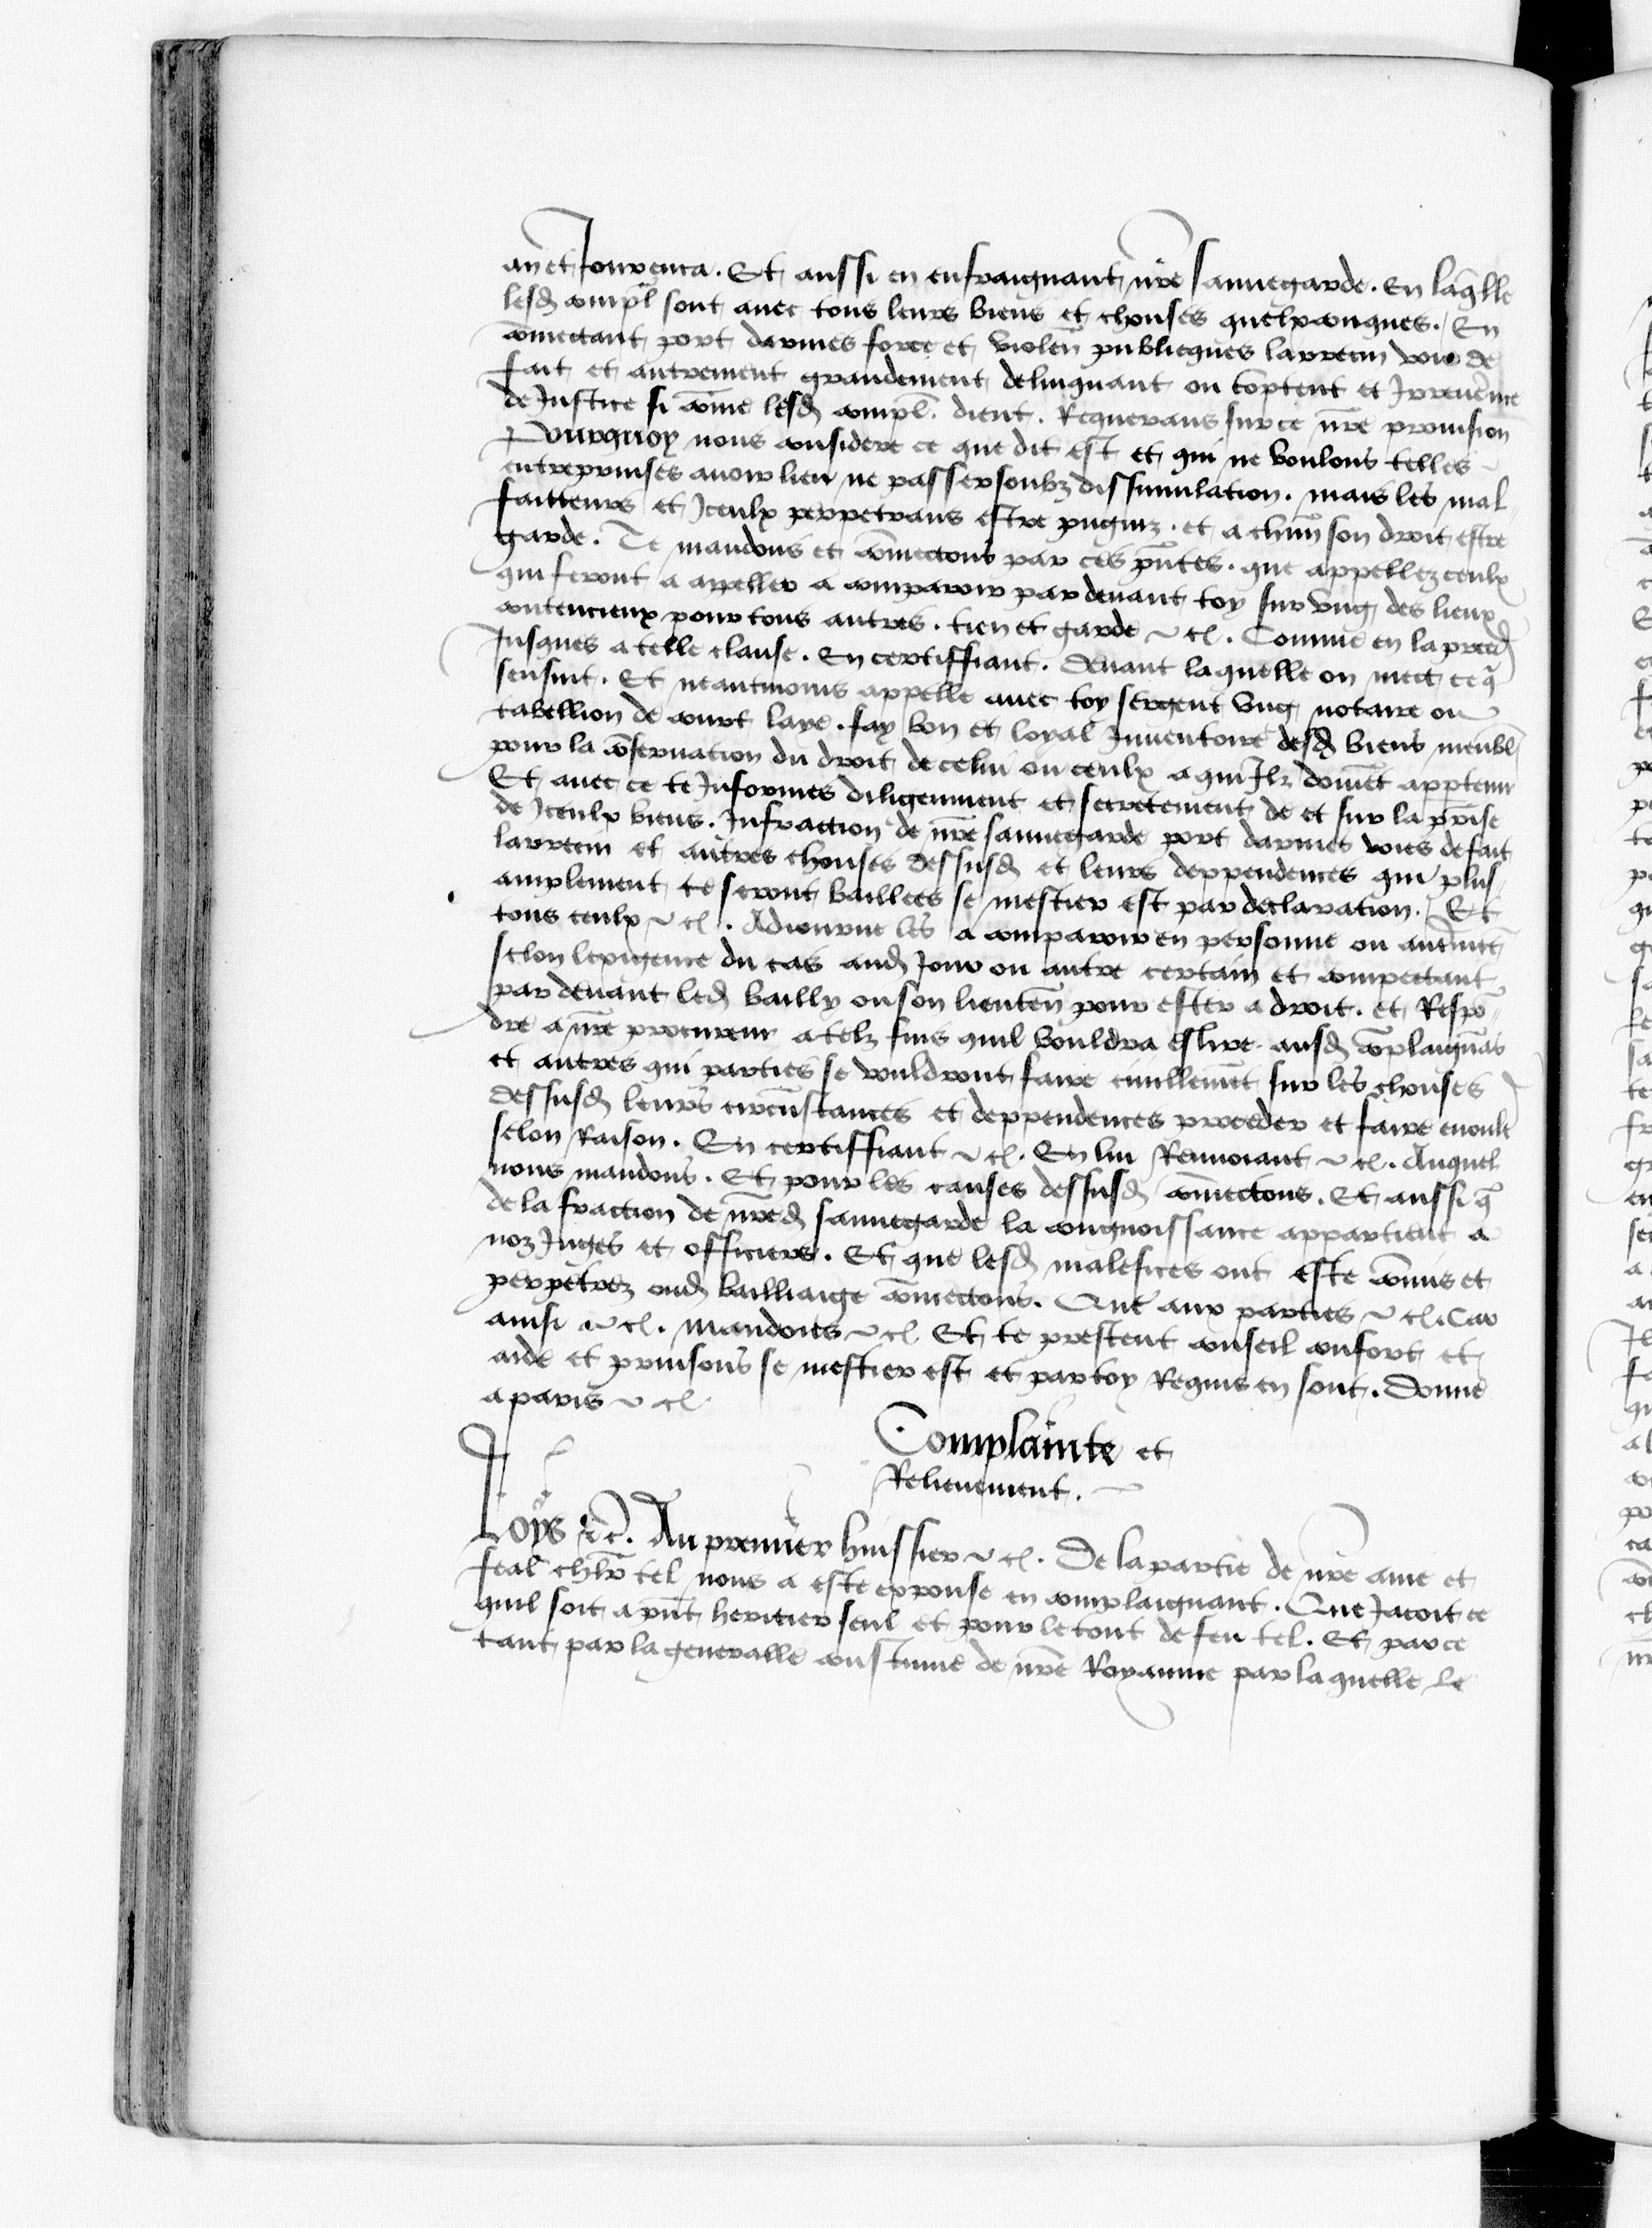 an et jour en ca. Et aussi en enfraignant nr̃e sauuegarde. En laq̃lle
lesd compl sont auec tous leurs biens et chouses quelxconques. En
cõmectant port darmes force et violen̄ publicques larrecin voie de
fait et autrement grandement delinquant ou cõptent et Irreuerence
de Justice si cõme lesd compl. dient. Requerans sur ce nr̃e prouision
Pourquoy nous considere ce que dit est et qui ne voulons telles
entreprinses auoir lieu ne passer soubz dissimulation. mais les mal
faitteurs et Iceulx perpetrans estre pugniz. et a chũn son droit estre
garde. Te mandons et cõmectons par ces pñtes. que appellez ceulx
qui seront a appeller a comparoir par deuant toy sur vng des lieux
contencieux pour tous autres. tien et garde &c. Comme en la preced
Jusques a telle clause. En certiffiant. Deuant laquelle on mect ce q̃
sensuit. Et neantmoins appelle auec toy sergent vng notaire ou
tabellion de court laye. fay bon et loyal Inuentoire desd biens meubl
pour la cõseruation du droit de celui ou ceulx a qui Ilz doiuẽt apptenir
Et auec ce te Informes diligenment et secretement de et sur la prise
de Iceulx biens. Infraction de nr̃e sauuegarde port darmes voies de fait
larrecin et autres chouses dessusd et leurs deppendences qui plus
amplement te seront baillees se mestier est par declaration. Et
tous ceulx &c. Adiourne les a comparoir en personne ou autremẽt
selon lexigence du cas aud Jour ou autre certain et competant
par deuant led bailly ou son lieuten̄ pour ester a droit. et Respõ
dre a nr̃e procureur a telz fins quil vouldra eslire. ausd cõplaignãs
et autres qui parties se vouldront faire ciuillemẽt sur les chouses
dessusd leurs circũstances et deppendences proceder et faire en oult
selon Raison. En certiffiant &c. En lui Renuoiant &c. Auquel
nous mandons. Et pour les causes dessusd cõmectons. Et aussi q̃
de la fraction de nr̃ed sauuegarde la congnoissance appartient a
noz Juges et officiers. Et que lesd malefices ont este cõmis et
perpetrez oud bailliaige cõmectons. Que aux parties &c. Car
ainsi &c. Mandons &c Et te prestent conseil confort et
aide et prinsons se mestier est et par toy Requis en sont. Donne
a paris &c
Complainte et
Relieuement.
Loys &c. Au premier huissier &c. De la partie de nr̃e ame et
feal chlr̃ tel nous a este expouse en complaignant. Que Jacoit ce
quil soit a pñt heritier seul et pour le tout de feu tel. Et par ce
tant par la generalle coustume de nr̃e Royaume par laquelle le